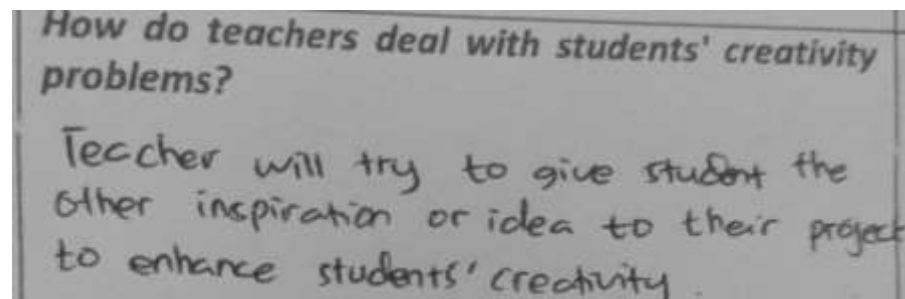 How do teachers deal with students' creativity
problems?
Teccher will try to give student the
other inspiration or idea to their project
to enhance students' creativity.